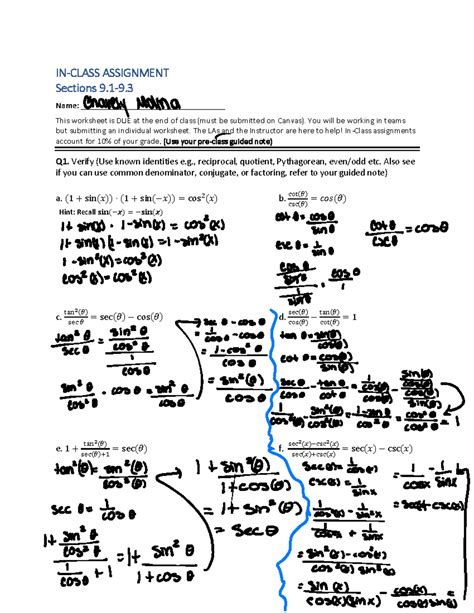 IN-CLASS ASSIGNMENT
Sections 9.1-9.3
Name: Charely Molina
This worksheet is DUE at the end of class (must be submitted on Canvas). You will be working in teams
but submitting an individual worksheet. The LAs and the Instructor are here to help! In-Class assignments
account for 10% of your grade. (Use your pre-class guided note)
Q1. Verify (Use known identities e.g., reciprocal, quotient, Pythagorean, even/odd etc. Also see
if you can use common denominator, conjugate, or factoring, refer to your guided note)
a. (1 + sin(x)) · (1 + sin(−x)) = cos²(x)
Hint: Recall sin(−x) = −sin(x)
1+ sin(x) · 1-sin(x) = cos²(x)
1+ sin(x) (1-sin(x) = 1-sin²(x)
1-sin²(x) = cos²(x)
cos²(x) = cos²(x)
b. cot(θ)/csc(θ) = cos(θ)
cot θ = cosθ/sinθ
csc θ = 1/sinθ
cotθ/cscθ = cosθ
c. tan²(θ)/secθ = sec(θ) − cos(θ)
tan²θ/secθ = sin²θ/cos²θ / 1/cosθ
sin²θ/cos²θ · cosθ = sin²θ/cosθ
secθ - cosθ
= 1-cos²θ/cosθ
= sin²(θ)/cosθ
d. sec(θ)/cos(θ) − tan(θ)/cot(θ) = 1
tan θ = sin(θ)/cos(θ)
cot θ = cos(θ)/sin(θ)
e. 1 + tan²(θ)/sec(θ)+1 = sec(θ)
tan²(θ) = sin²(θ)/cos²(θ)
sec θ = 1/cosθ
1+ sin²θ/cos²θ / 1/cosθ + 1 = 1+ sin²θ/1+cosθ
1+ sin²(θ)/1+cos(θ)
= 1+ sin²(θ)
= secθ
f. sec²(x)−csc²(x)/sec(x)+csc(x) = sec(x) − csc(x)
csc(x) = 1/sinx
= 1/cosx - 1/sinx
= sin²(x)-cos²(x)
= sin(x) - cos(x)/cos(x)sin(x)